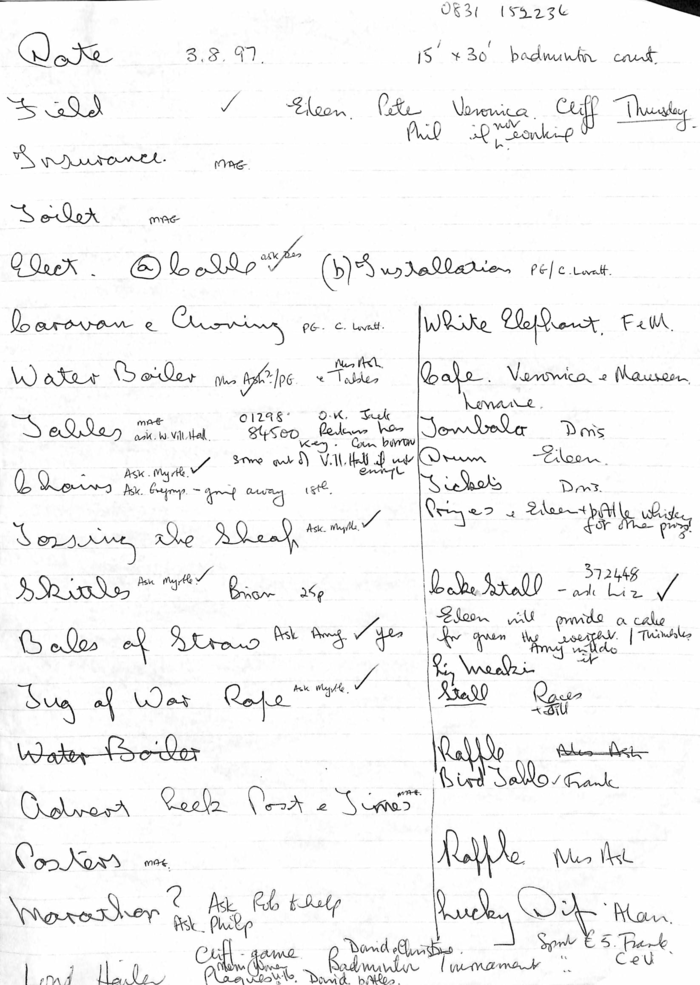 0831 152236
Date 3.8.97. 15' x 30' badminton court.
Field ✓ Eileen. Pete Veronica. Cliff Thursday.
Phil if not working
Insurance. MAG
Toilet MAG
Elect. (a) Cable ask Des ✓ (b) Installation PG/C. Lovatt.
Caravan & Awning PG. C. Lovatt.
Water Boiler Mrs Ash?/PG. ✓ & Mrs Ash Tables
Tables MAG ask. W. Vill. Hall. 01298 84500 O.K. Jack Perkins has key. Can borrow
some out of Vill. Hall if not enough
Chairs Ask. Myrtle. ✓
Ask. - going away 18th.
Tossing the Sheaf Ask. Myrtle. ✓
Skittles Ask Myrtle ✓ Brian 25p
Bales of Straw Ask Amy. ✓ yes
Tug of War Rope Ask Myrtle. ✓
Water Boiler
Advert Leek Post & Times MAG.
Posters MAG.
Marathon? Ask Rob to help
Ask. Philp
White Elephant. F & M.
Cafe. Veronica & Maureen.
Lorraine.
Tombola Dms
Drum Eileen.
Tickets Dms.
Prizes & Eileen + bottle whisky
for other prizes
Cake Stall - ask Liz 372448 ✓
Eileen will provide a cake
for guess the weight. / Thimbles
Amy will do it
Liz Meakin
Stall Races
+ Jill
Raffle Mrs Ash
Bird Table Frank
Raffle Mrs Ash
Lucky Dip Alan.
Spent £5. Frank
" Cev
Cliff - game David & Christine
Plaques Badminton Tournament
David bottles.